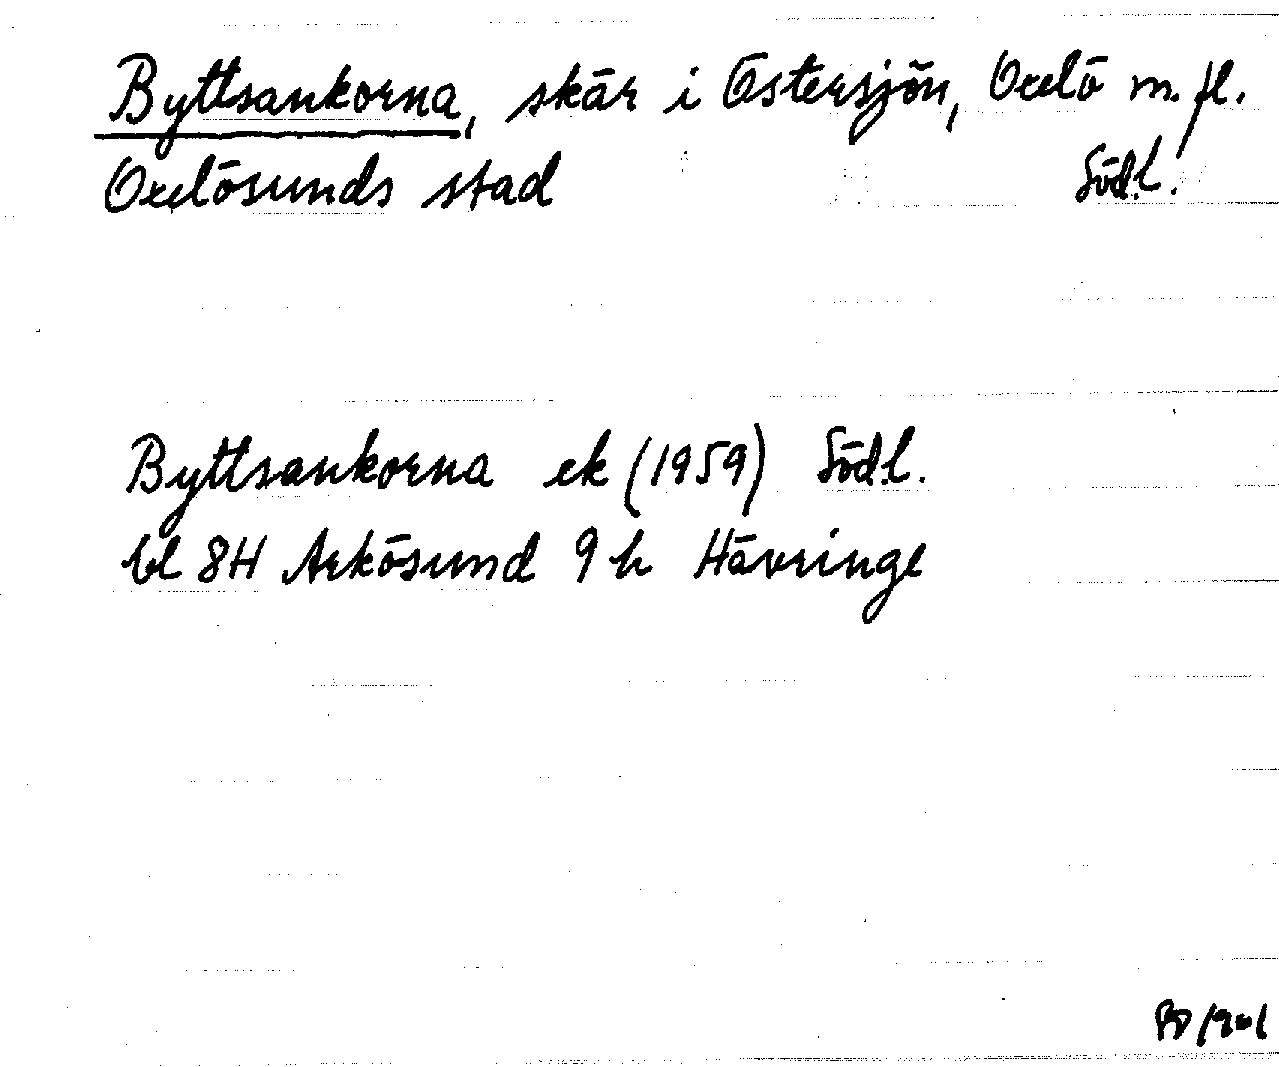 Byttsankorna, skär i Östersjön, Oxelö m. fl.
Oxelösunds stad Södl.
Byttsankorna ek (1959) Södl.
bl 8H Arkösund 9 h Hävringe